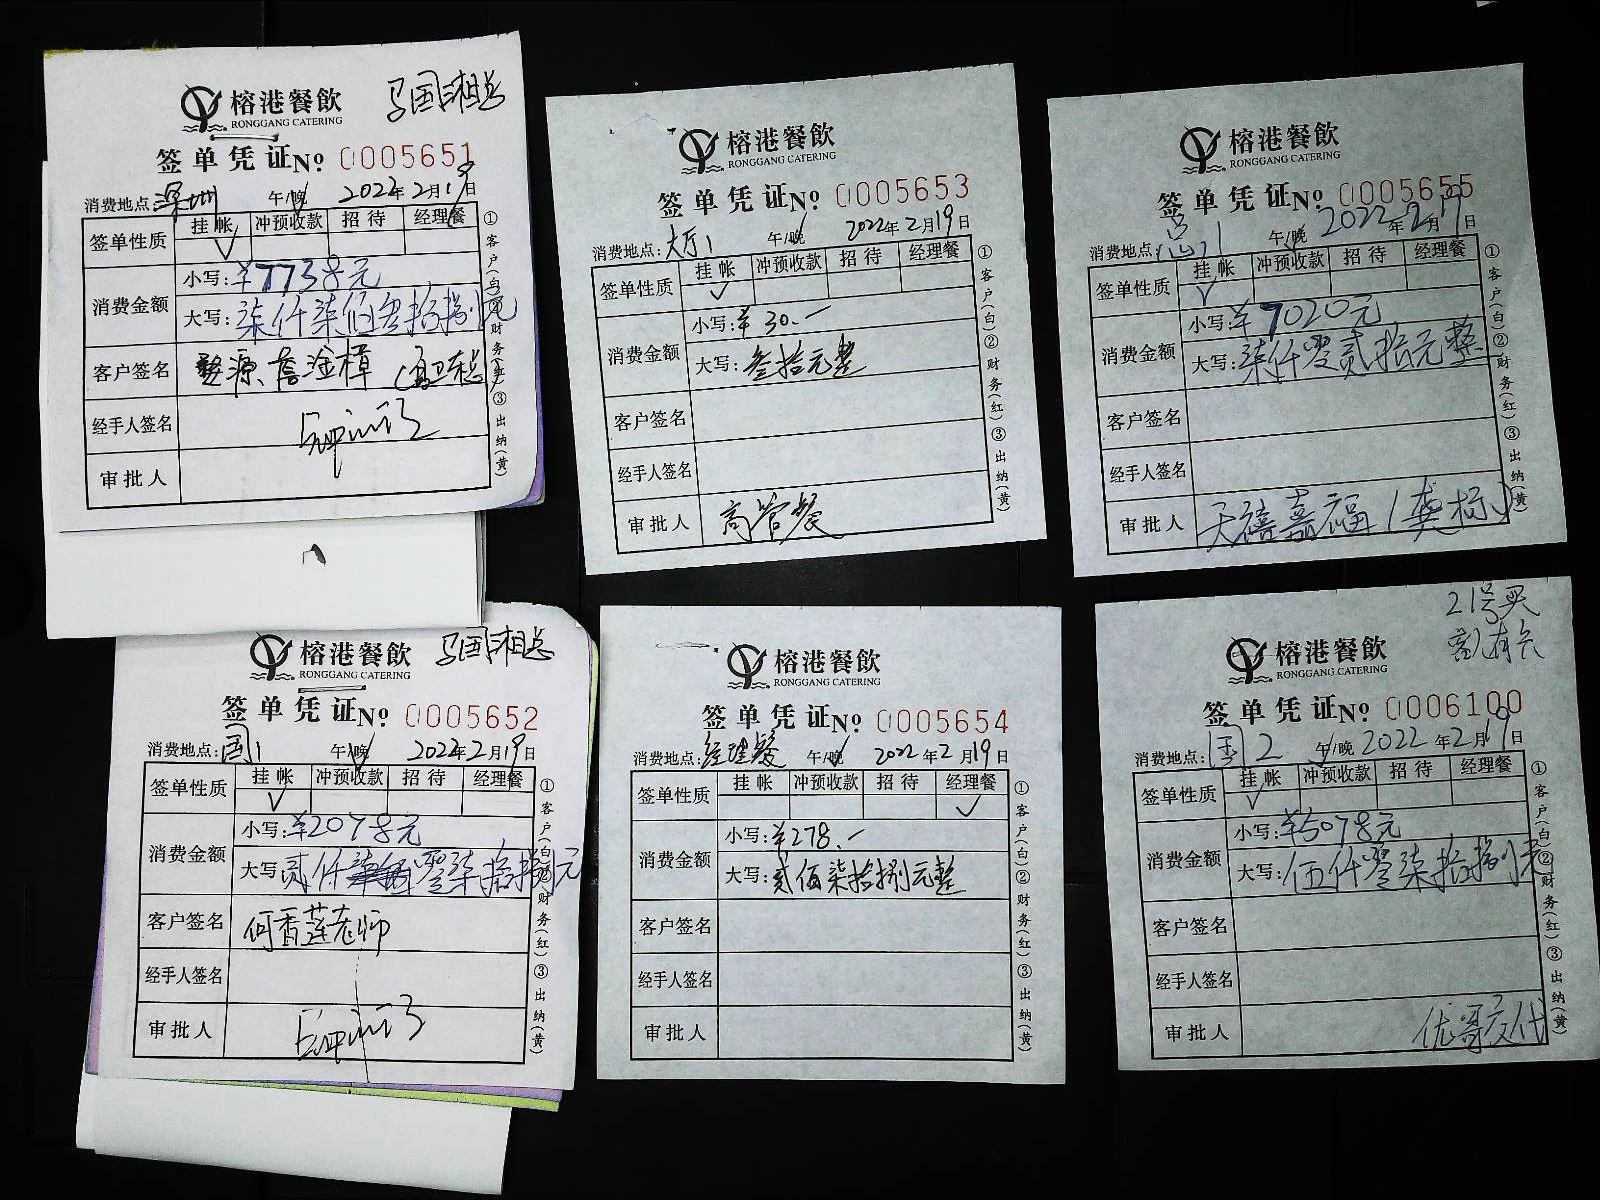 马国湘总
榕港餐飲
RONGGANG CATERING
签单凭证 № 0005651
消费地点:深圳 午/晚 2022年2月19日
签单性质 挂帐 冲预收款 招待 经理餐
✓
消费金额 小写:¥7738元
大写:柒仟柒佰叁拾捌元
客户签名 婺源、詹淦樟
经手人签名
审批人
①客户(白)②财务(红)③出纳(黄)
榕港餐飲
RONGGANG CATERING
签单凭证 № 0005653
消费地点:大厅1 午/晚 2022年2月19日
签单性质 挂帐 冲预收款 招待 经理餐
✓
消费金额 小写:¥30.-
大写:叁拾元整
客户签名
经手人签名
审批人 高管餐
①客户(白)②财务(红)③出纳(黄)
榕港餐飲
RONGGANG CATERING
签单凭证 № 0005655
消费地点: 午/晚 2022年2月19日
签单性质 挂帐 冲预收款 招待 经理餐
✓
消费金额 小写:¥7020元
大写:柒仟零贰拾元整
客户签名
经手人签名
审批人 天禧嘉福
①客户(白)②财务(红)③出纳(黄)
马国湘总
榕港餐飲
RONGGANG CATERING
签单凭证 № 0005652
消费地点:国1 午/晚 2022年2月19日
签单性质 挂帐 冲预收款 招待 经理餐
✓
消费金额 小写:¥2078元
大写:贰仟零柒拾捌元
客户签名 何香莲老师
经手人签名
审批人
①客户(白)②财务(红)③出纳(黄)
榕港餐飲
RONGGANG CATERING
签单凭证 № 0005654
消费地点:经理餐 午/晚 2022年2月19日
签单性质 挂帐 冲预收款 招待 经理餐
✓
消费金额 小写:¥278.-
大写:贰佰柒拾捌元整
客户签名
经手人签名
审批人
①客户(白)②财务(红)③出纳(黄)
21号买
榕港餐飲
RONGGANG CATERING
签单凭证 № 0006100
消费地点:国2 午/晚 2022年2月19日
签单性质 挂帐 冲预收款 招待 经理餐
✓
消费金额 小写:¥5078元
大写:伍仟零柒拾捌元
客户签名
经手人签名
审批人 优哥交代
①客户(白)②财务(红)③出纳(黄)